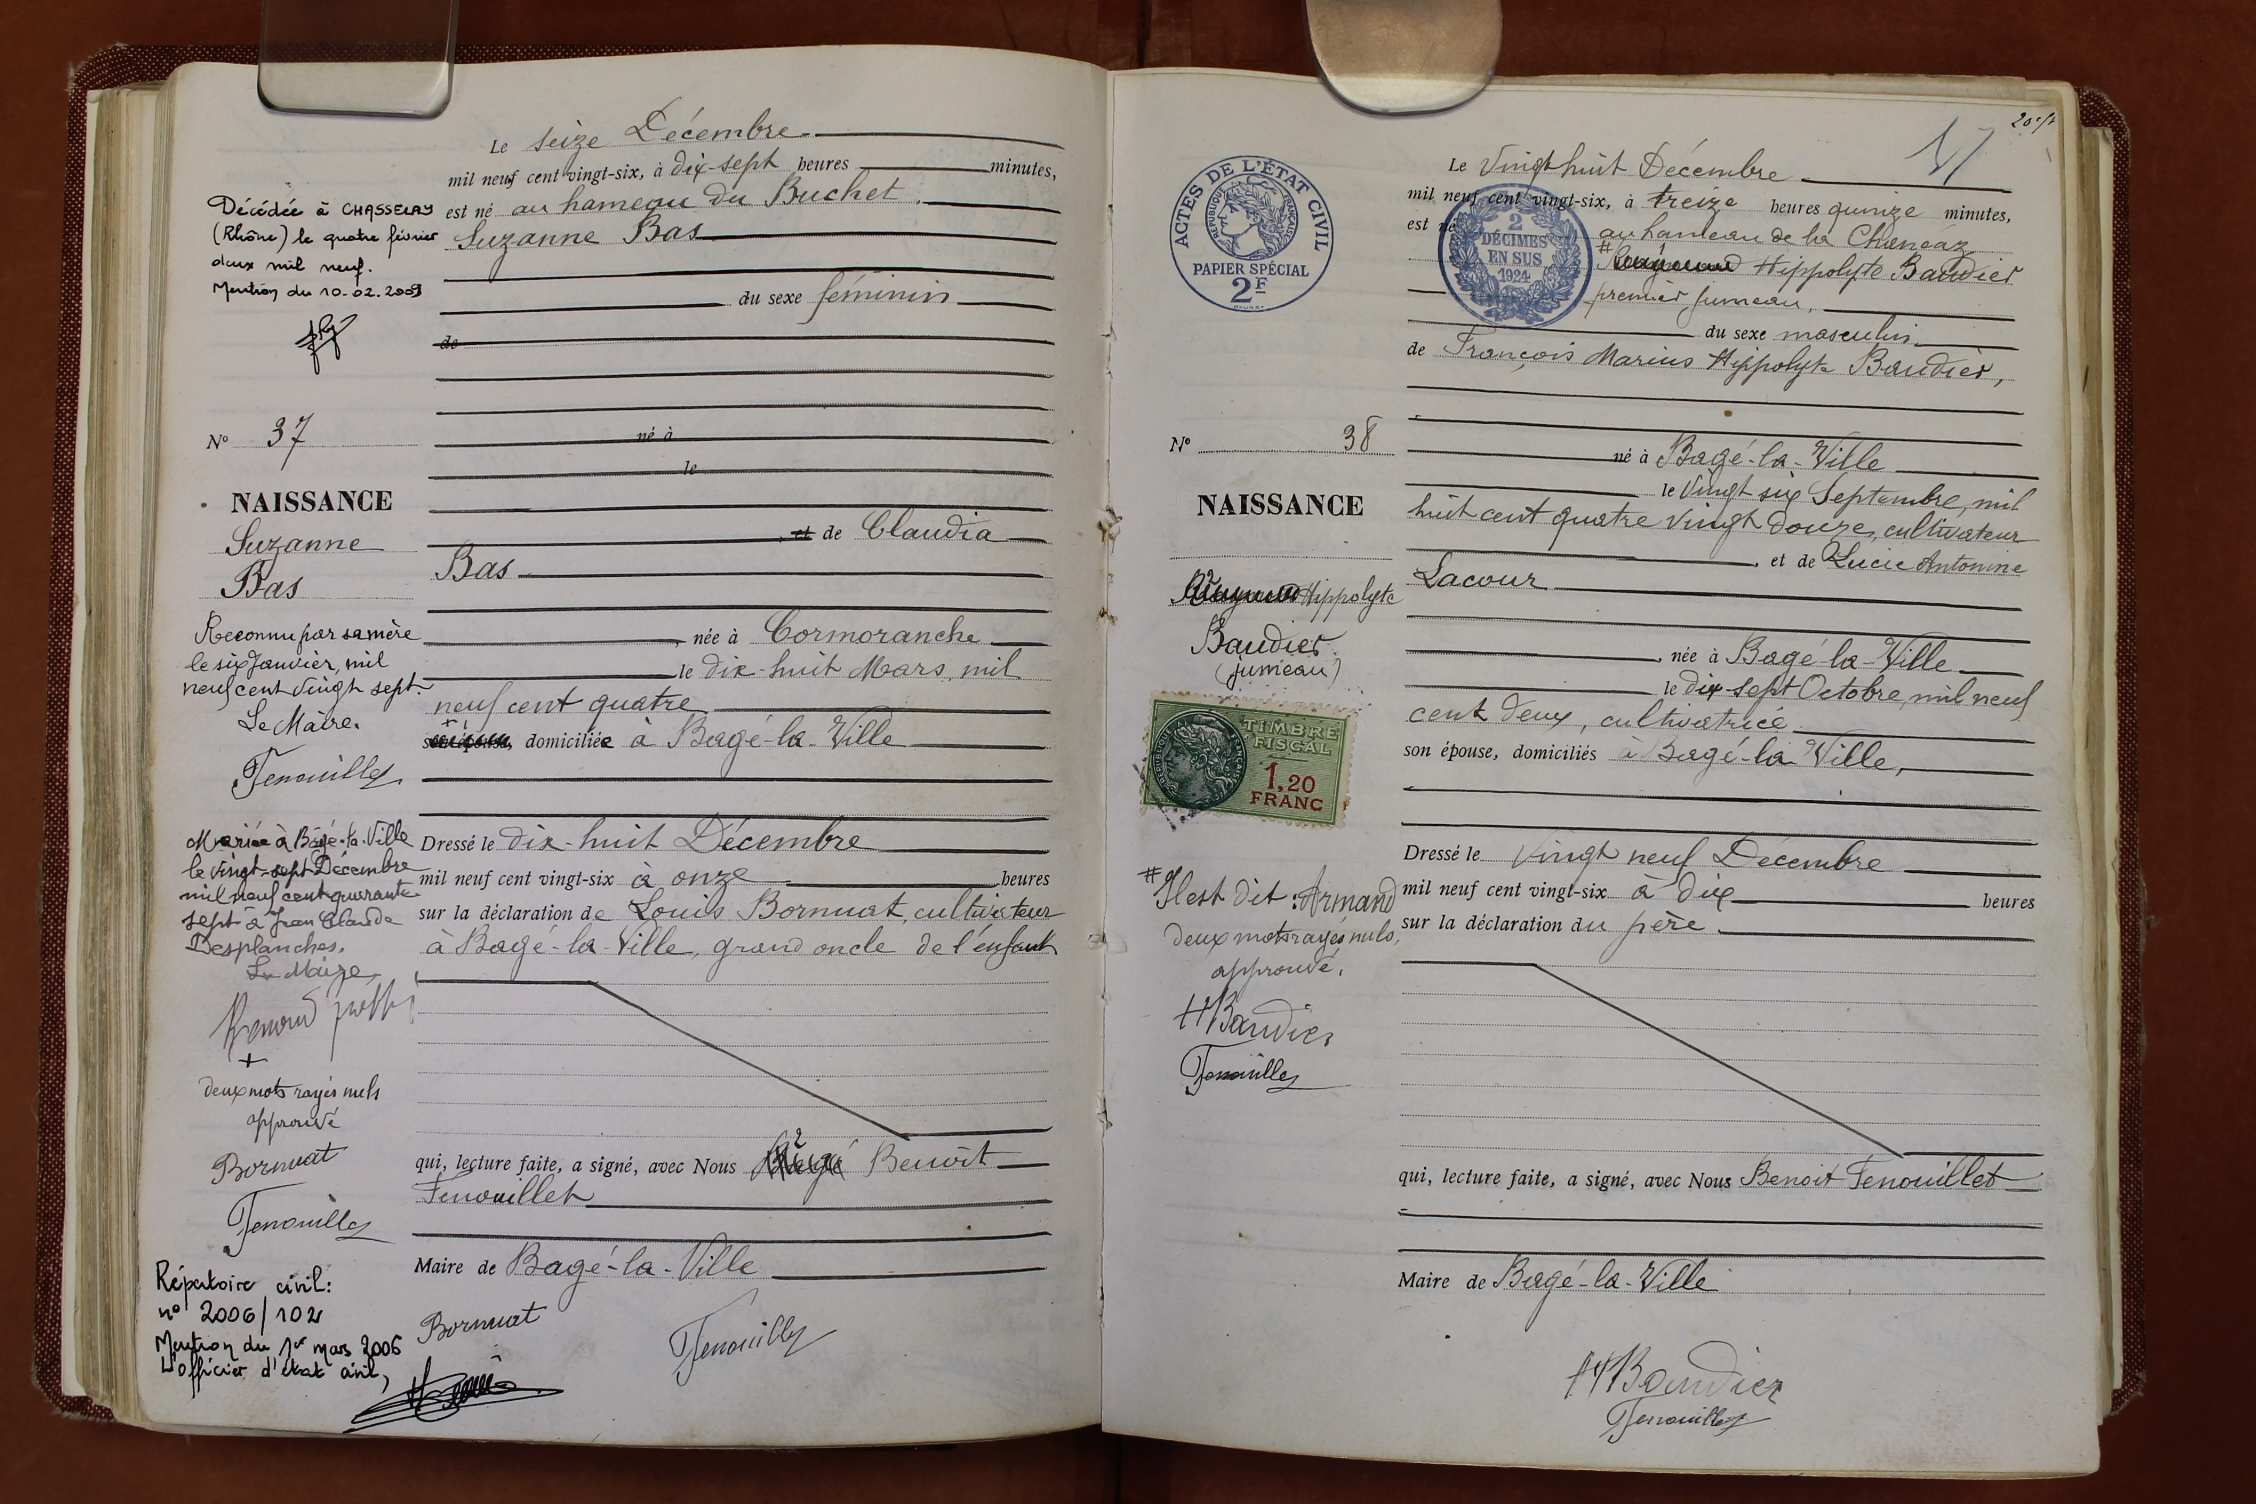 Le seize Décembre
mil neuf cent vingt-six, à dix-sept heures minutes,
est né au hameau du Buchet
Suzanne Bas
du sexe féminin
de
né à
le
et de Claudia
Bas
née à Cormoranche
le dix-huit Mars, mil
neuf cent quatre
+
son épouse, domiciliée à Bagé-la-Ville
Dressé le dix-huit Décembre
mil neuf cent vingt-six à onze heures
sur la déclaration de Louis Bornuat, cultivateur
à Bagé-la-Ville, grand oncle de l'enfant
qui, lecture faite, a signé, avec Nous Benoît
Fenouillet
Maire de Bagé-la-Ville
Bornuat
Fenouillet
Décédée à CHASSELAY
(Rhône) le quatre février
deux mil neuf.
Mention du 10.02.2009
N° 37
NAISSANCE
Suzanne
Bas
Reconnu par sa mère
le six Janvier, mil
neuf cent vingt sept.
Le Maire.
Fenouillet
Mariée à Bâgé-la-Ville
le vingt-sept Décembre
mil neuf cent quarante
sept à Jean Claude
Desplanches.
Le Maire,
+
deux mots rayés nuls
approuvé
Bornuat
Fenouillet
Répertoire civil:
n° 2006/102
Mention du 1er mars 2006
L'officier d'état civil,
20e/t
Le Vingt huit Décembre
mil neuf cent vingt-six, à treize heures quinze minutes,
est né au hameau de la Chanéaz
# Hippolyte Baudier
premier jumeau,
du sexe masculin
de François Marius Hippolyte Baudier,
né à Bagé-la-Ville
le vingt six Septembre, mil
huit cent quatre vingt douze, cultivateur
et de Lucie Antonine
Lacour
née à Bagé-la-Ville
le dix-sept Octobre, mil neuf
cent deux, cultivatrice
son épouse, domiciliés à Bagé-la-Ville,
Dressé le Vingt neuf Décembre
mil neuf cent vingt-six à dix heures
sur la déclaration du père.
qui, lecture faite, a signé, avec Nous Benoit Fenouillet
Maire de Bagé-la-Ville
H Baudier
Fenouillet
ACTES DE L'ÉTAT CIVIL
RÉPUBLIQUE FRANÇAISE
PAPIER SPÉCIAL
2F
2
DÉCIMES
EN SUS
1924
N° 38
NAISSANCE
Hippolyte
Baudier
(jumeau)
TIMBRE
FISCAL
1,20
FRANC
# Il est dit: Armand
deux mots rayés nuls,
approuvé.
H Baudier
Fenouillet